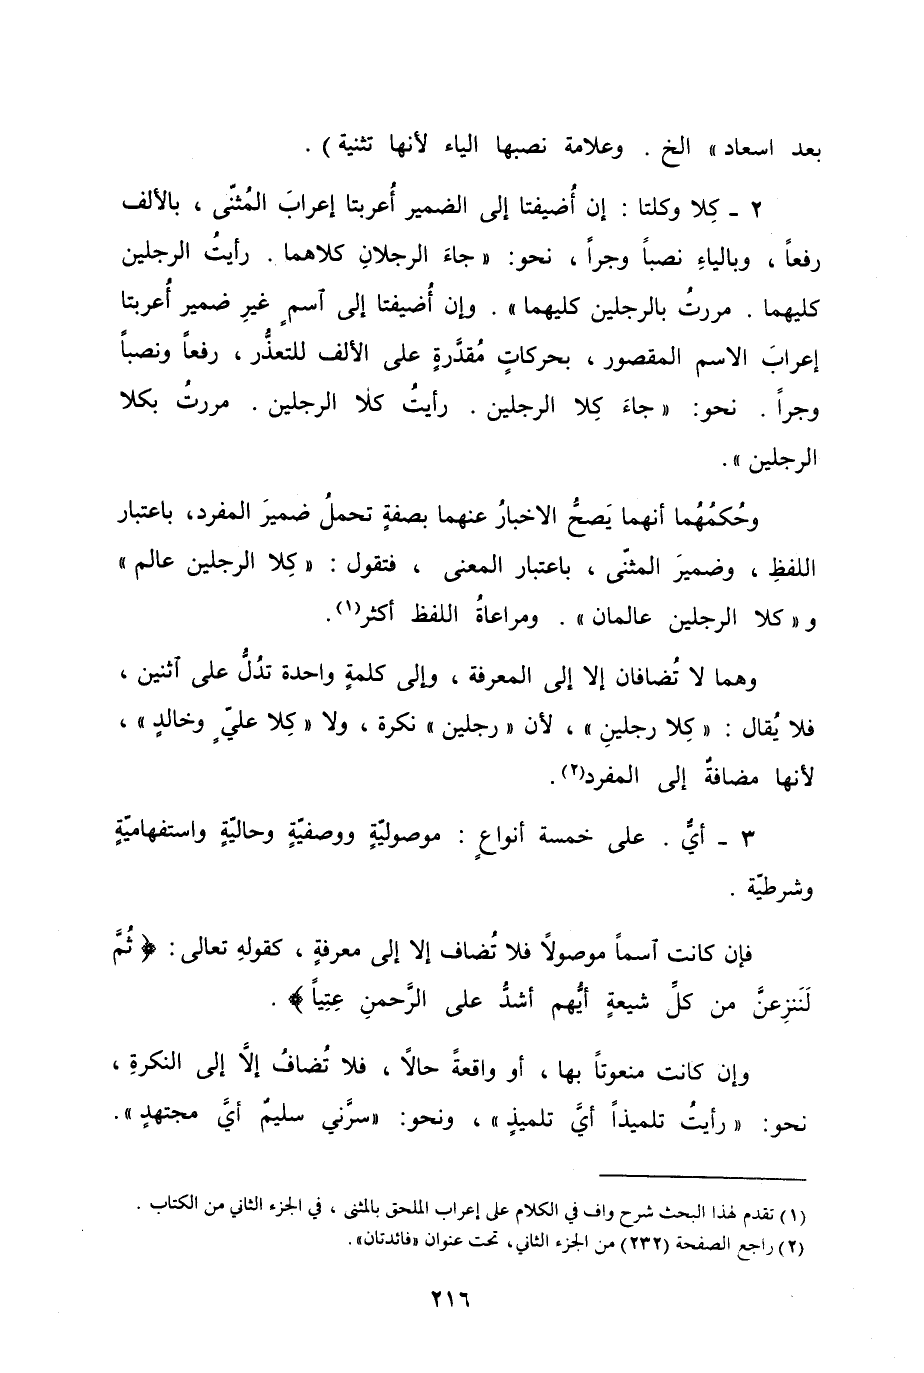 بعد اسعاد» الخ . وعلامة نصبها الياء لأنها تثنية ) .
٢ ـ كِلا وكلتا : إن أُضيفتا إلى الضمير أُعربتا إعرابَ المُثنّى ، بالألف
رفعاً ، وبالياءِ نصباً وجراً ، نحو: « جاءَ الرجلانِ كلاهما . رأيتُ الرجلين
كليهما . مررتُ بالرجلين كليهما » . وإن أُضيفتا إلى آسمٍ غيرِ ضمير أُعربتا
إعرابَ الاسم المقصور ، بحركاتٍ مُقدَّرةٍ على الألف للتعذُّر ، رفعاً ونصباً
وجراً . نحو: « جاءَ كِلا الرجلين . رأيتُ كلا الرجلين . مررتُ بكلا
الرجلين ».
وحُكمُهُما أنهما يَصحُّ الاخبارُ عنهما بصفةٍ تحملُ ضميرَ المفرد، باعتبار
اللفظِ ، وضميرَ المثنّى ، باعتبار المعنى ، فتقول : « كِلا الرجلين عالم »
و « كلا الرجلين عالمان » . ومراعاةُ اللفظ أكثر(١).
وهما لا تُضافان إلا إلى المعرفة ، وإلى كلمةٍ واحدة تدُلُّ على آثنين ،
فلا يُقال : « كِلا رجلينِ » ، لأن « رجلين » نكرة ، ولا « كِلا عليّ وخالدٍ » ،
لأنها مضافةٌ إلى المفرد(٢).
٣ ـ أيُّ . على خمسة أنواعٍ : موصوليّةٍ ووصفيّةٍ وحاليّةٍ واستفهاميّةٍ
وشرطيّة .
فإن كانت آسماً موصولاً فلا تُضاف إلا إلى معرفةٍ ، كقولهِ تعالى : ﴿ ثُمَّ
لَنَنزِعنَّ من كلِّ شيعةٍ أيُّهم أشدُّ على الرَّحمنِ عِتِياً ﴾ .
وإن كانت منعوتاً بها ، أو واقعةً حالاً ، فلا تُضافُ إلاَّ إلى النكرةِ ،
نحو: « رأيتُ تلميذاً أيَّ تلميذٍ » ، ونحو: «سرَّني سليمٌ أيَّ مجتهدٍ ».
(١) تقدم لهذا البحث شرح واف في الكلام على إعراب الملحق بالمثنى ، في الجزء الثاني من الكتاب .
(٢) راجع الصفحة (٢٣٢) من الجزء الثاني، تحت عنوان «فائدتان».
٢١٦